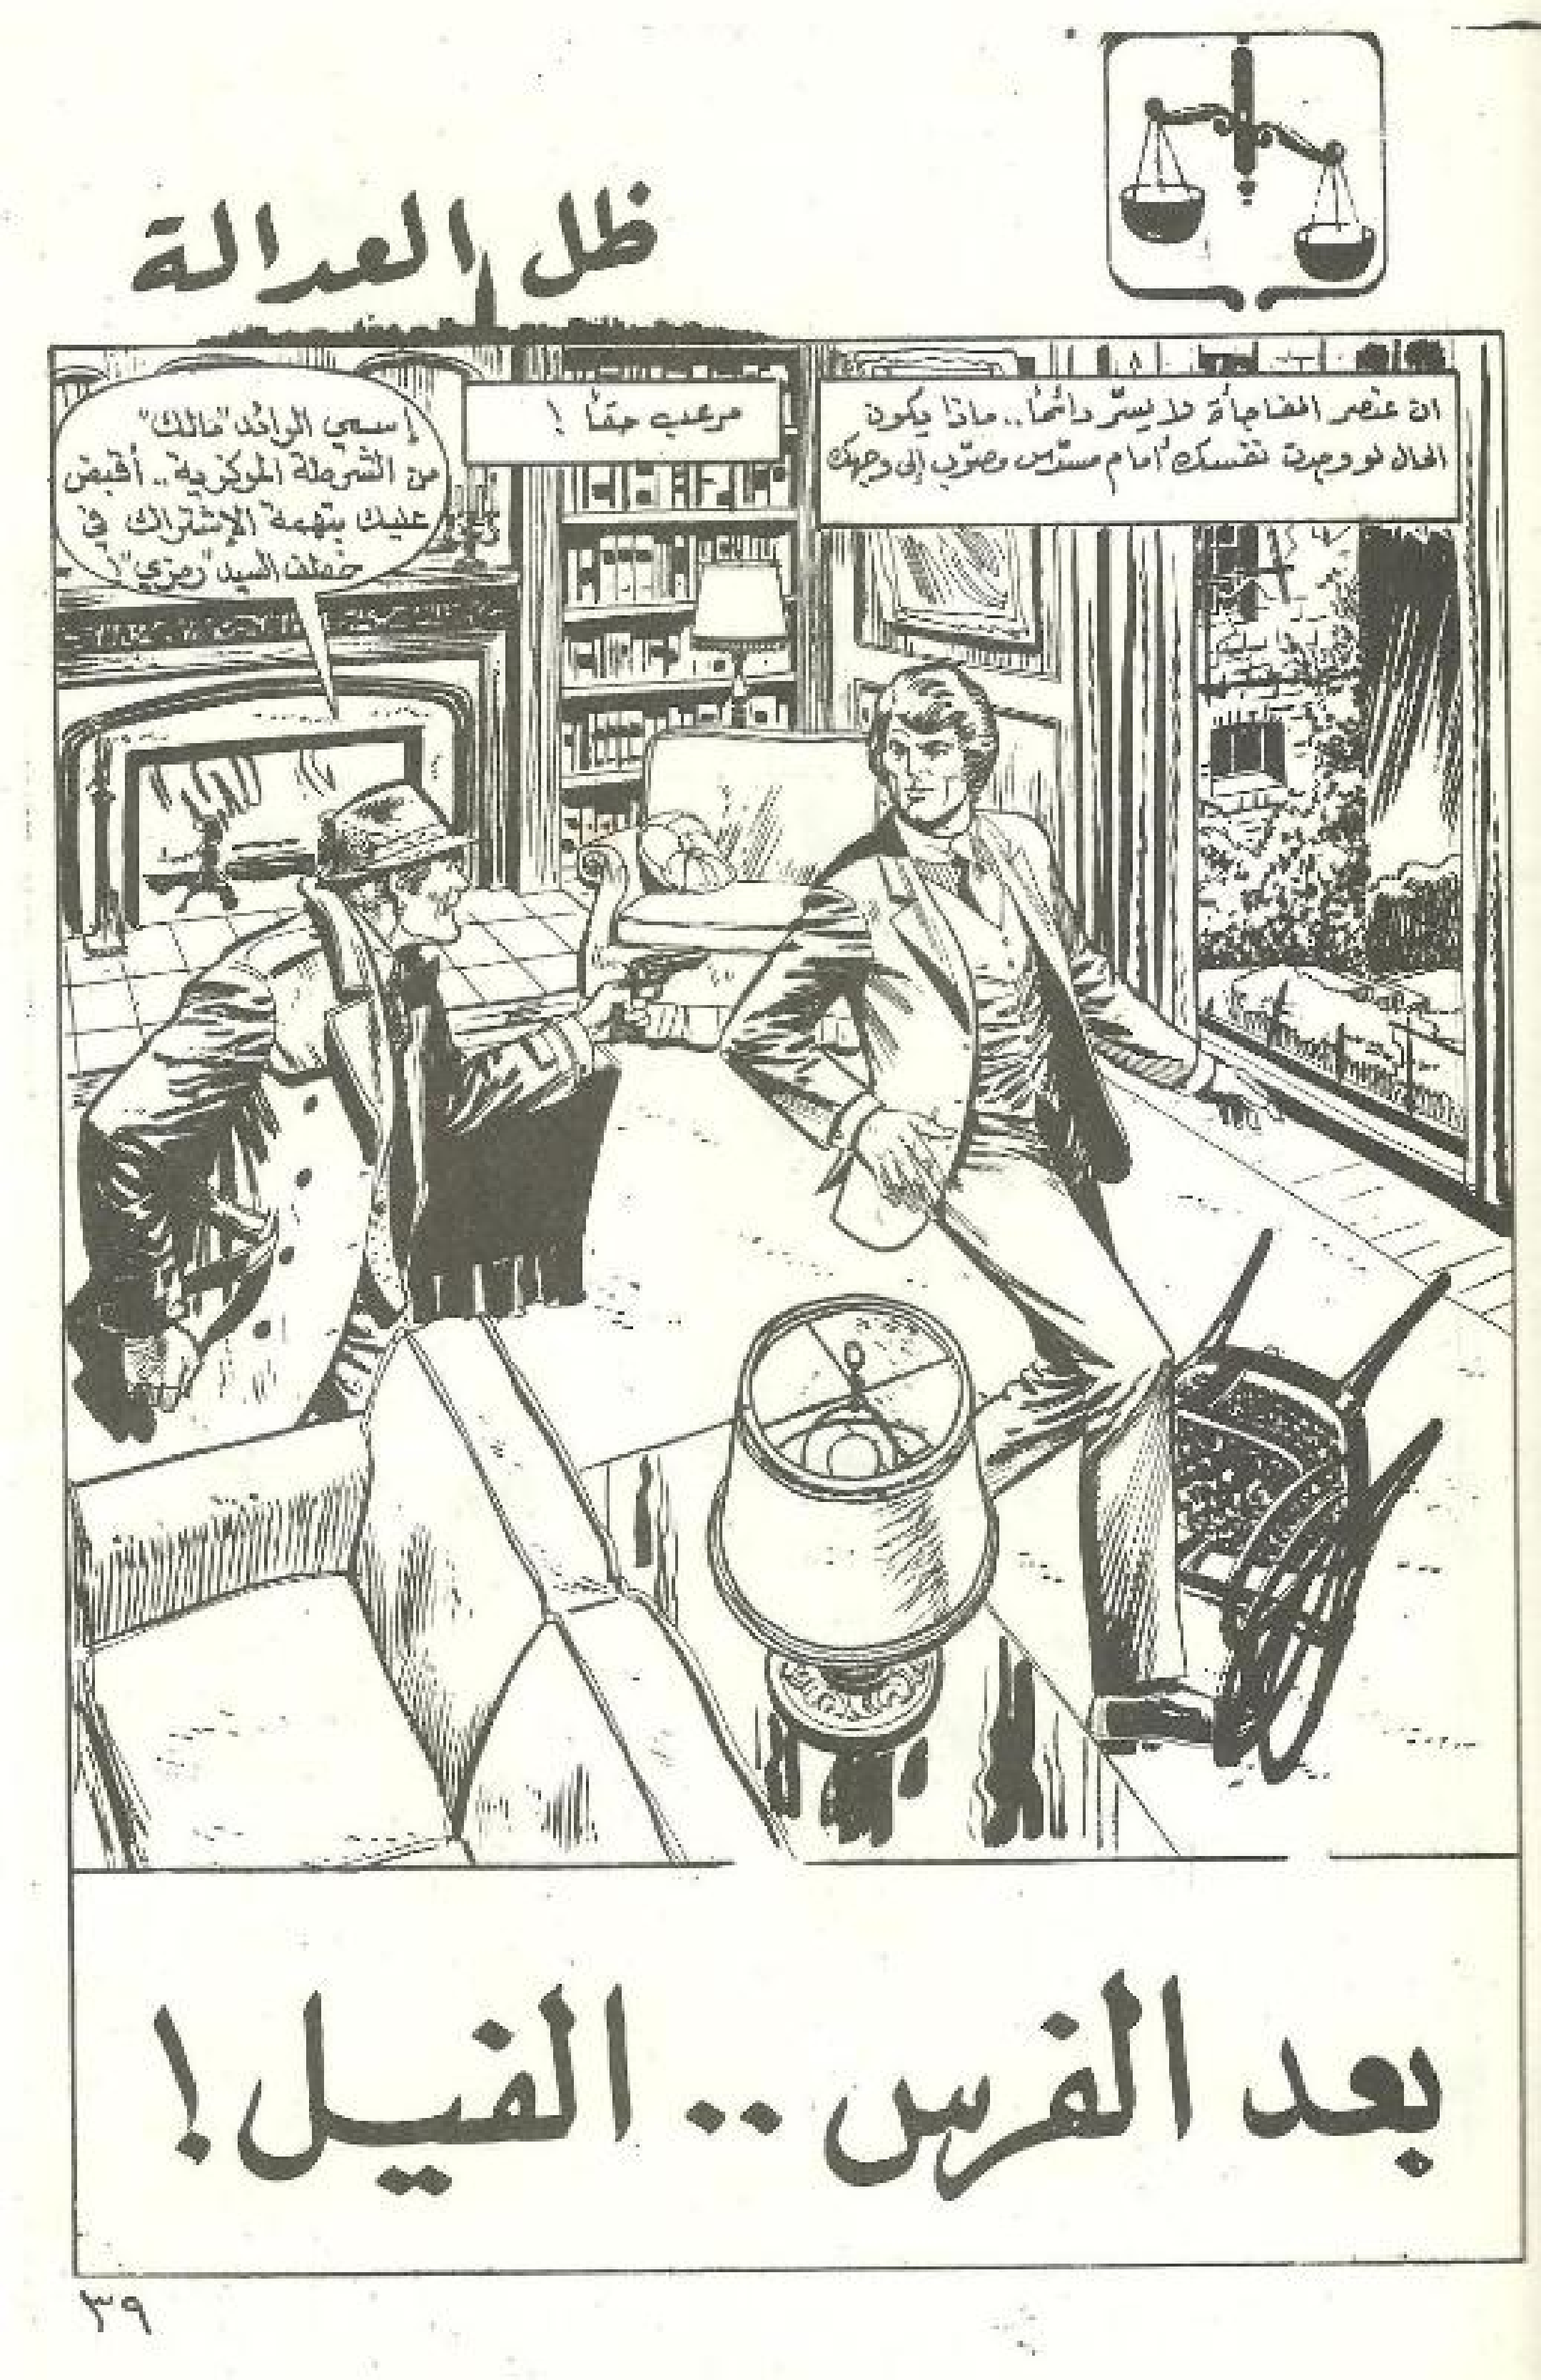 ظل العدالة
ان عنصر المفاجأة لا يسرّ دائماً.. ماذا يكون
الحال لو وجدت نفسك أمام مسدّس مصوّب إلى وجهك
مرعب حقاً !
إسمي الرائد "مالك"
من الشرطة المركزية.. أقبض
عليك بتهمة الإشتراك في
خطف السيد "رمزي" !
بعد الفرس .. الفيل !
٣٩